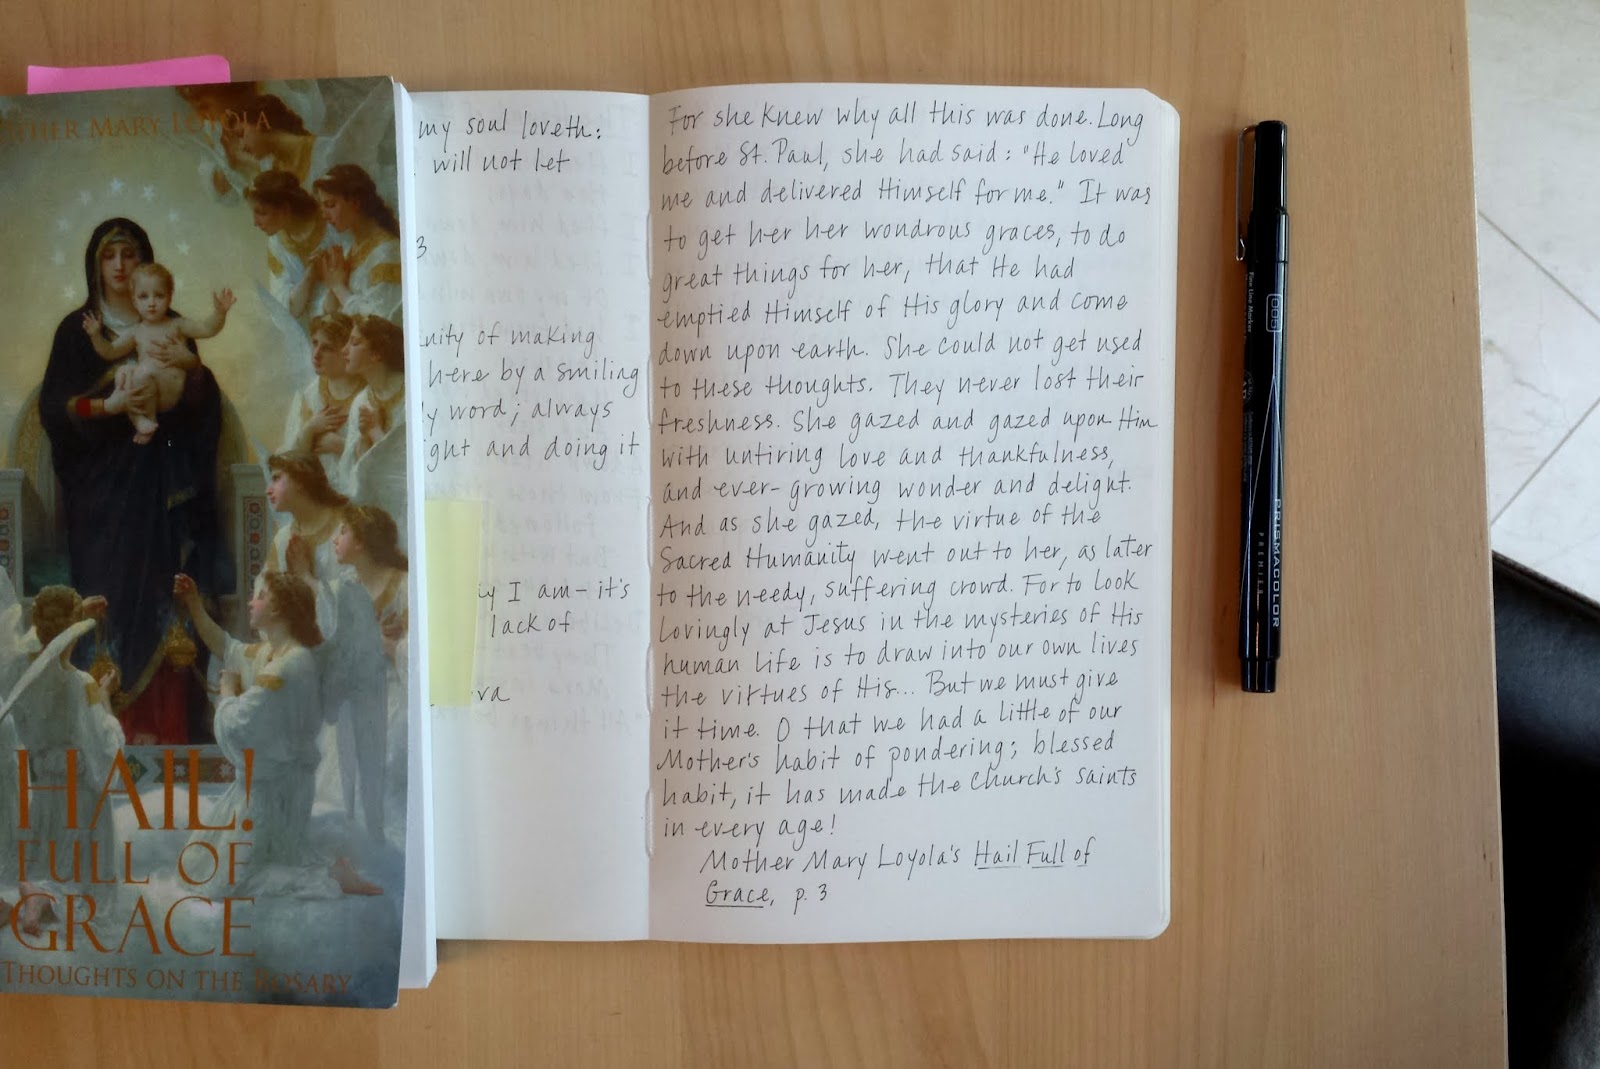 OTHER MARY LOYOLA
HAIL!
FULL OF
GRACE
THOUGHTS ON THE ROSARY
my soul loveth:
will not let
3
nity of making
here by a smiling
y word; always
ght and doing it
y I am - it's
lack of
va
For she knew why all this was done. Long
before St. Paul, she had said: "He loved
me and delivered Himself for me." It was
to get her her wondrous graces, to do
great things for her, that He had
emptied Himself of His glory and come
down upon earth. She could not get used
to these thoughts. They never lost their
freshness. She gazed and gazed upon Him
with untiring love and thankfulness,
and ever-growing wonder and delight.
And as she gazed, the virtue of the
Sacred Humanity went out to her, as later
to the needy, suffering crowd. For to look
lovingly at Jesus in the mysteries of His
human life is to draw into our own lives
the virtues of His... But we must give
it time. O that we had a little of our
Mother's habit of pondering; blessed
habit, it has made the Church's saints
in every age!
Mother Mary Loyola's Hail Full of
Grace, p. 3
005
Fine Line Marker
PRISMACOLOR
PREMIER